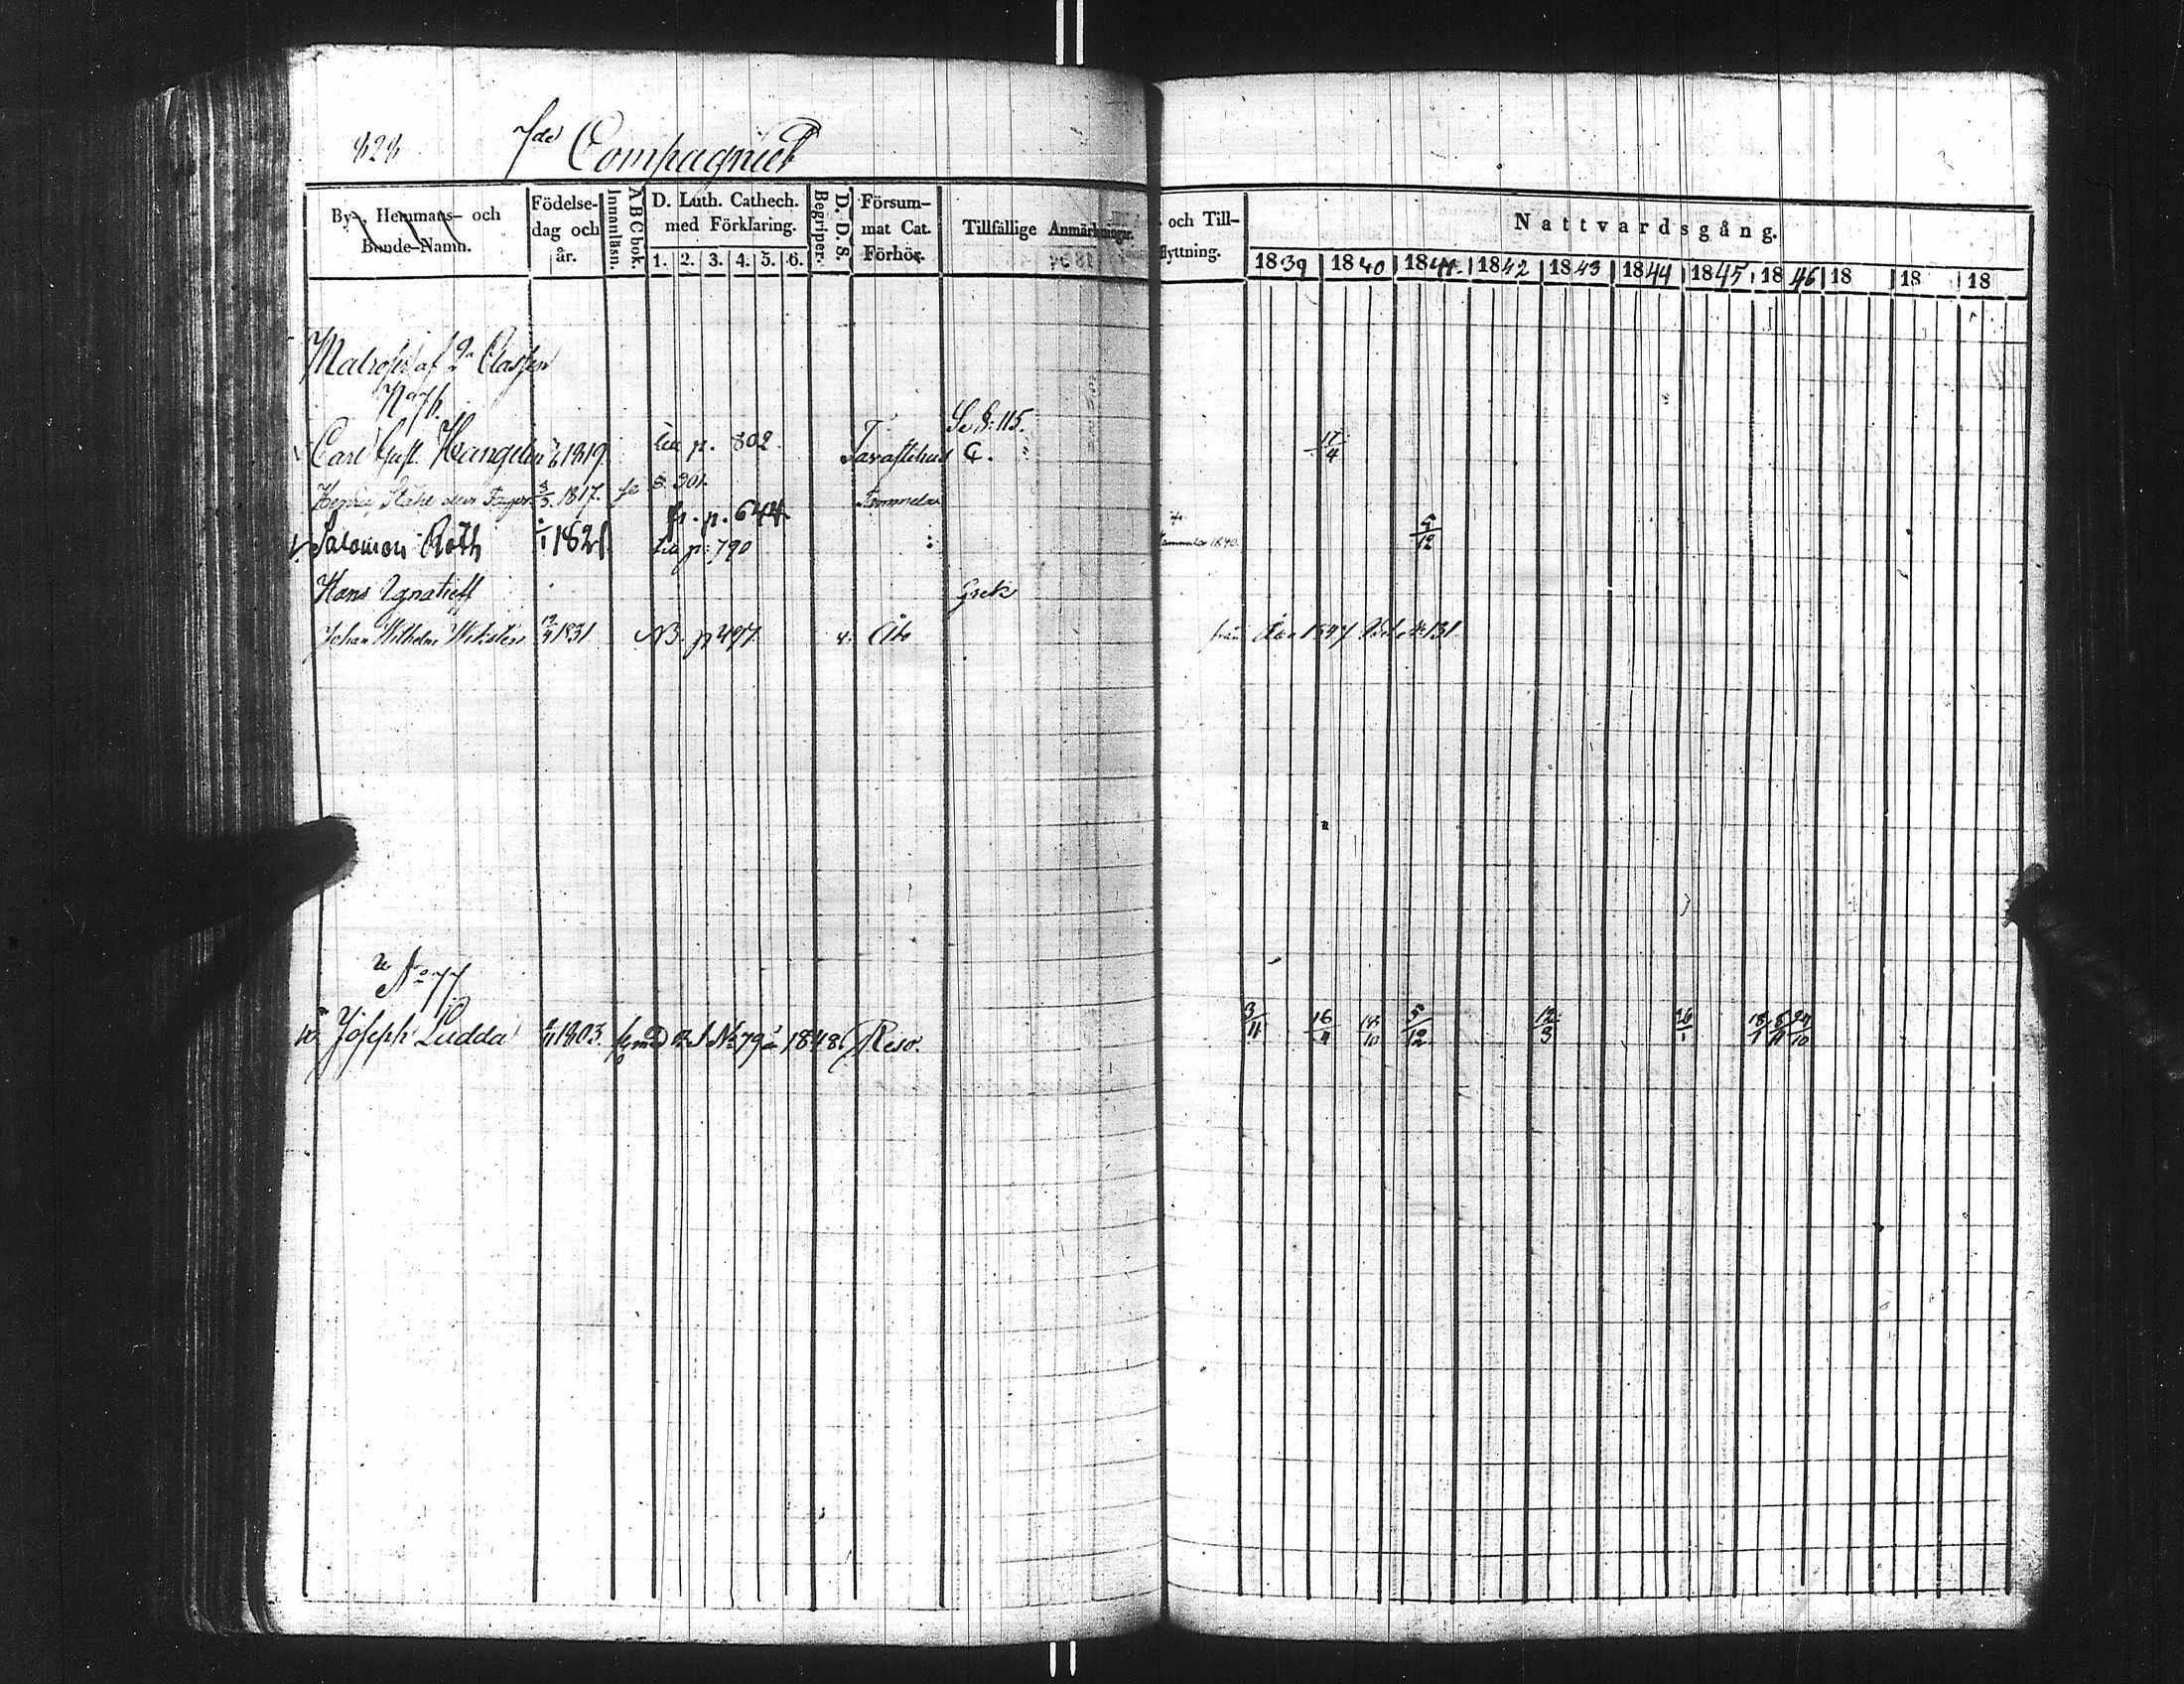 828 7de Compagniet
By-, Hemmans- och Bonde-Namn.
Födelse-dag och år.
ABC bok. Innanläsn.
D. Luth. Cathech. med Förklaring.
1. 2. 3. 4. 5. 6.
D. D. S. Begriper.
Försum-mat Cat. Förhör.
Tillfällige Anmärkningar.
och Till-
flyttning.
Nattvardsgång.
1839 1840 1841. 1842 1843 1844 1845 1846 18 18 18
Matroser af 2a Classen
No 76.
Se S: 115.
Carl Gust. Hangelin 1819. p. 802. Tavastehus C. 17/4
Stahl 3/3. 1817. S. 301. Tammela
fr. p. 644
Salomon Roth 1821 p: 790 1840. 5/12
Hans Ignatieff Grek
Johan Wilhelm Weksten 1831. NB. p 497. Åbo från Åbo 1847 131
No 77
Joseph Ludda 1803. No 79 1848. Reso. 3/11 16/11 18/10 5/12 12/3 26/1 18/1 8/11 24/10